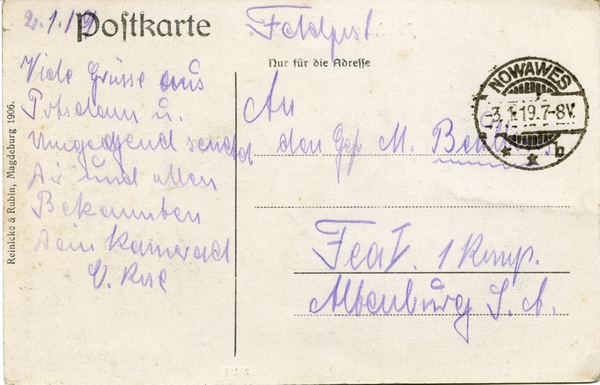 2.1.19
Postkarte
Feldpost.
Nur für die Adresse
Viele Grüsse aus
Potsdam u.
Umgegend sendet
Dir und allen
Bekannten
Dein Kamerad
An
den Gef. M.
Feat. 1 Komp.
Altenburg S. A.
NOWAWES
3.1.19.7-8V.
* * b
Reinicke & Rubin, Magdeburg 1906.